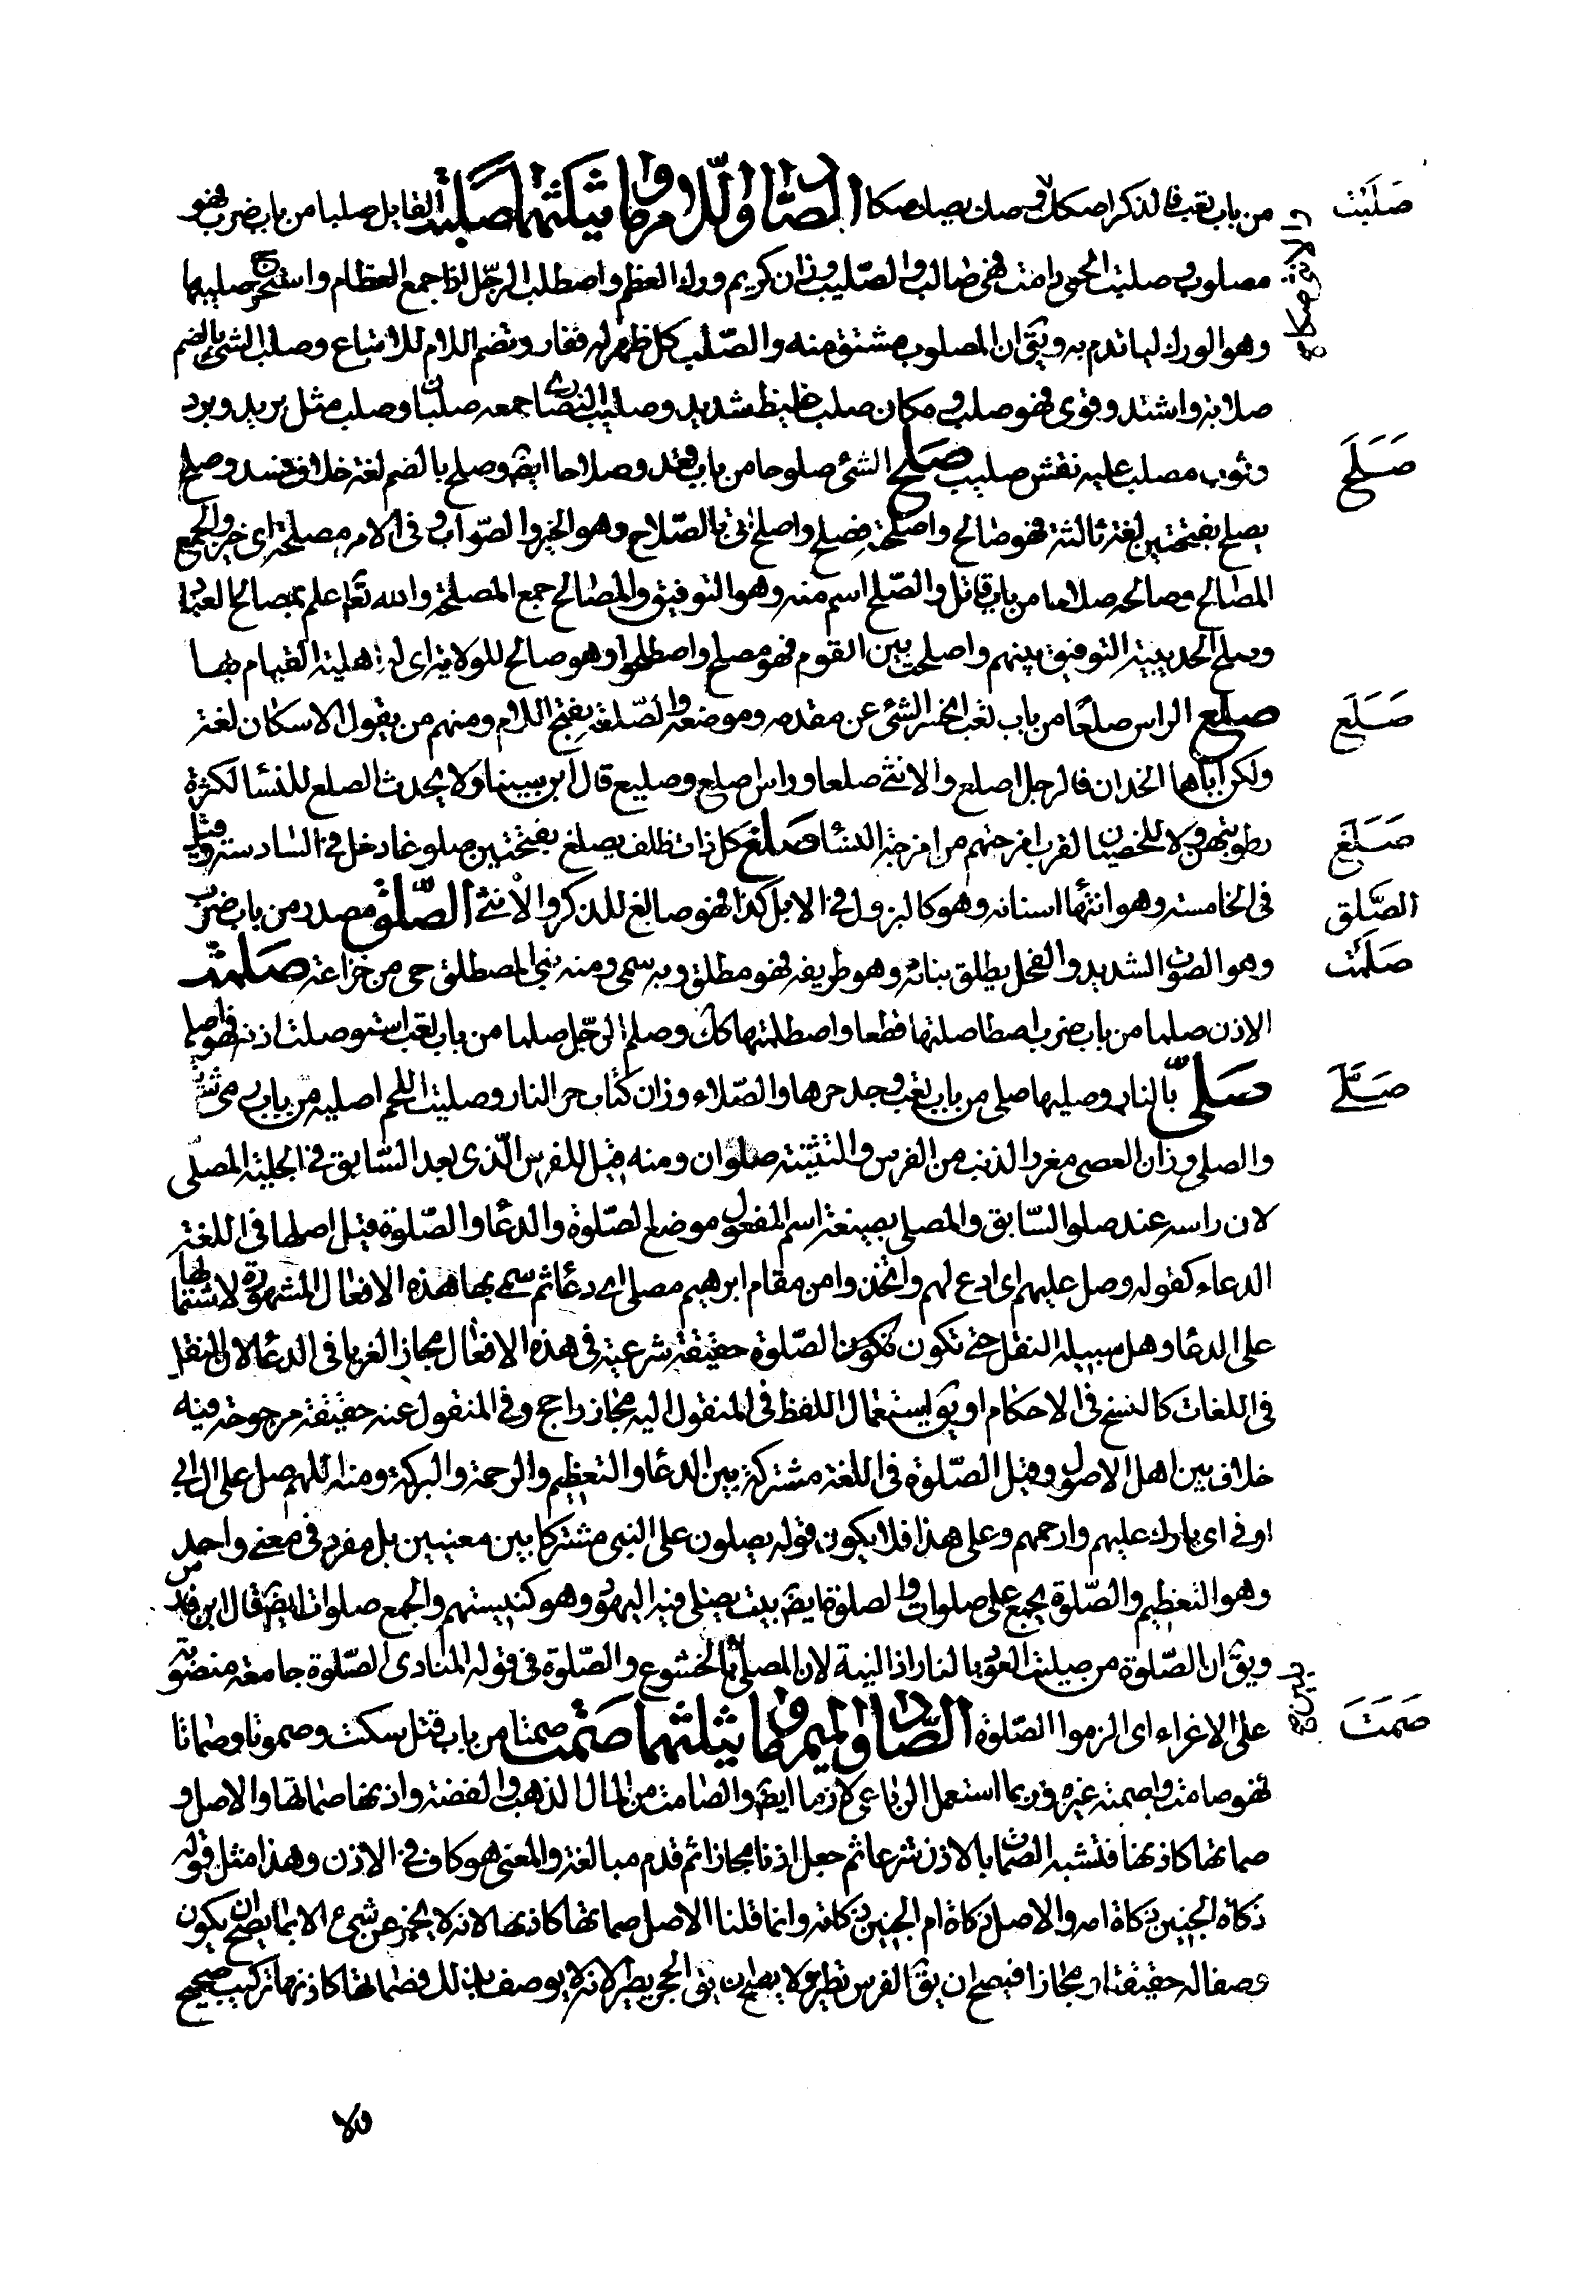 صلبت
من باب تعب فالذكر اصك وصك يصك صكا الصّاد واللّام وما يثلثهما صلبت القاتل صلبا من باب ضرب فهو
مصلوب وصلبت الحمى دامت فهى صالب والصّليب وزان كريم ودك العظم واصطلب الرجّل اذا جمع العظام واستخرج صليبها
وهو الودك ليأتدم به ويق ان المصلوب مشتق منه والصّلب كل ظهر له فقار وتضم اللام للاتباع وصلب الشئ بالضم
صلابة واشتد وقوى فهو صلب ومكان صلب غليظ شديد وصليب النصارى جمعه صلبان وصلب مثل بريد وبرد
صلح
وثوب مصلب عليه نقش صليب صلح الشئ صلوحا من باب قعد وصلاحا ايض وصلح بالضم لغة خلاف فسد وصلح
يصلح بفتحتين لغة ثالثة فهو صالح واصلحته فصلح واصلح اتى بالصّلاح وهو الخير والصّواب وفى الامر مصلحة اى خير والجمع
المصالح وصالحه صلاحا من باب قاتل والصّلح اسم منه وهو التوفيق والمصالح جمع المصلحة والله تعا اعلم بمصالح العباد
وصلح الحديبية التوفيق بينهم واصلحت بين القوم فهو مصلح واصطلحوا وهو صالح للولاية اى له اهلية القيام بها
صلع
صلع الراس صلعًا من باب تعب انحسر الشئ عن مقدمه وموضعه والصّلعة بفتح اللام ومنهم من يقول الاسكان لغة
ولكن اباها الحذاق فالرجل اصلع والانثى صلعا وراس اصلع وصليع قال ابن سينا ولا يحدث الصلع للنسا لكثرة
صلغ
رطوبتهن ولا للخصيان لقرب امزجتهم من امزجة النسا صلغ كل ذات ظلف يصلغ بفتحتين صلوغا دخل فى السّادسة وقيل
الصّلق
فى الخامسة وهو انتهأ اسنانه وهو كالبزول فى الابل كذا فهو صالغ للذكر والانثى الصّلق مصدر من باب ضرب
صلمت
وهو الصوت الشديد والفحل يصطلق بنابه وهو صريفه فهو مصطلق وبه سمى ومنه بنى المصطلق حى من خزاعة صلمت
الاذن صلما من باب ضرب استاصلتها قطعا واصطلمتها كك وصلم الرجّل صلما من باب تعب استوصلت اذنه فهو اصلم
صلى
صلى بالنار وصليها صلى من باب تعب وجد حرها والصّلاء وزان كتاب حر النار وصليت اللحم اصليه من باب رمى شويته
والصلى وزان العصى مغرز الذنب من الفرس والتثنية صلوان ومنه قيل للفرس الّذى بعد السّابق فى الحلبة المصلى
لان راسه عند صلو السّابق والمصلى بصيغة اسم المفعول موضع الصّلوة والدعا والصّلوة قيل اصلها فى اللغة
الدعاء كقوله وصل عليهم اى ادع لهم واتخذوا من مقام ابرهيم مصلى اى دعا ثم سمى بها هذه الافعال المشهورة لاشتمالها
على الدعا وهل سبيله النقل حتى تكون الصّلوة حقيقة شرعية فى هذه الافعال مجازا لغويا فى الدعا لان النقل
فى اللغات كالنسخ فى الاحكام او يق استعمال اللفظ فى المنقول اليه مجاز راجح وفى المنقول عنه حقيقة مرجوحة فيه
خلاف بين اهل الاصول وقيل الصّلوة فى اللغة مشتركة بين الدعا والتعظيم والرحمة والبركة ومنه اللهم صل على ال ابى
اوفى اى بارك عليهم وارحمهم وعلى هذا فلا يكون قوله يصلون على النبى مشتركا بين معنيين بل مفرد فى معنى واحد
وهو التعظيم والصّلوة يجمع على صلوات والصلوة ايض بيت يصلى فيه اليهود وهو كنيستهم والجمع صلوات ايض قال ابن فارس
ويق ان الصّلوة من صليت العود بالنار اذا لينته لان المصلى يلين بالخشوع والصّلوة فى قوله المنادى الصّلوة جامعة منصوبة
صمت
على الاغراء اى الزموا الصّلوة الصّاد والميم وما يثلثهما صمت صمتا من باب قتل سكت وصموتا وصماتا
فهو صامت واصمته غيره وربما استعمل الرباعى لازما ايض والصامت من المال الذهب والفضة واذنها صماتها والاصل و
صماتها كاذنها فتشبه الصمات بالاذن شرعا ثم جعل اذنا مجازا ثم قدم مبالغة والمعنى هو كاف فى الاذن وهذا مثل قوله
ذكاة الجنين ذكاة امه والاصل ذكاة ام الجنين ذكاته وانما قلنا الاصل صماتها كاذنها لانه لا يخبر عن شئ الا بما يصح ان يكون
وصفا له حقيقة او مجازا فيصح ان يق الفرس يطير ولا يصح ان يق الحجر يطير لانه لا يوصف بذلك فصماتها كاذنها تركيب صحيح